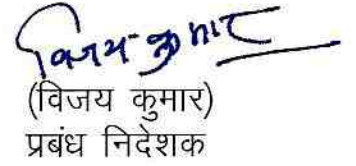 विजय कुमार
(विजय कुमार)
प्रबंध निदेशक